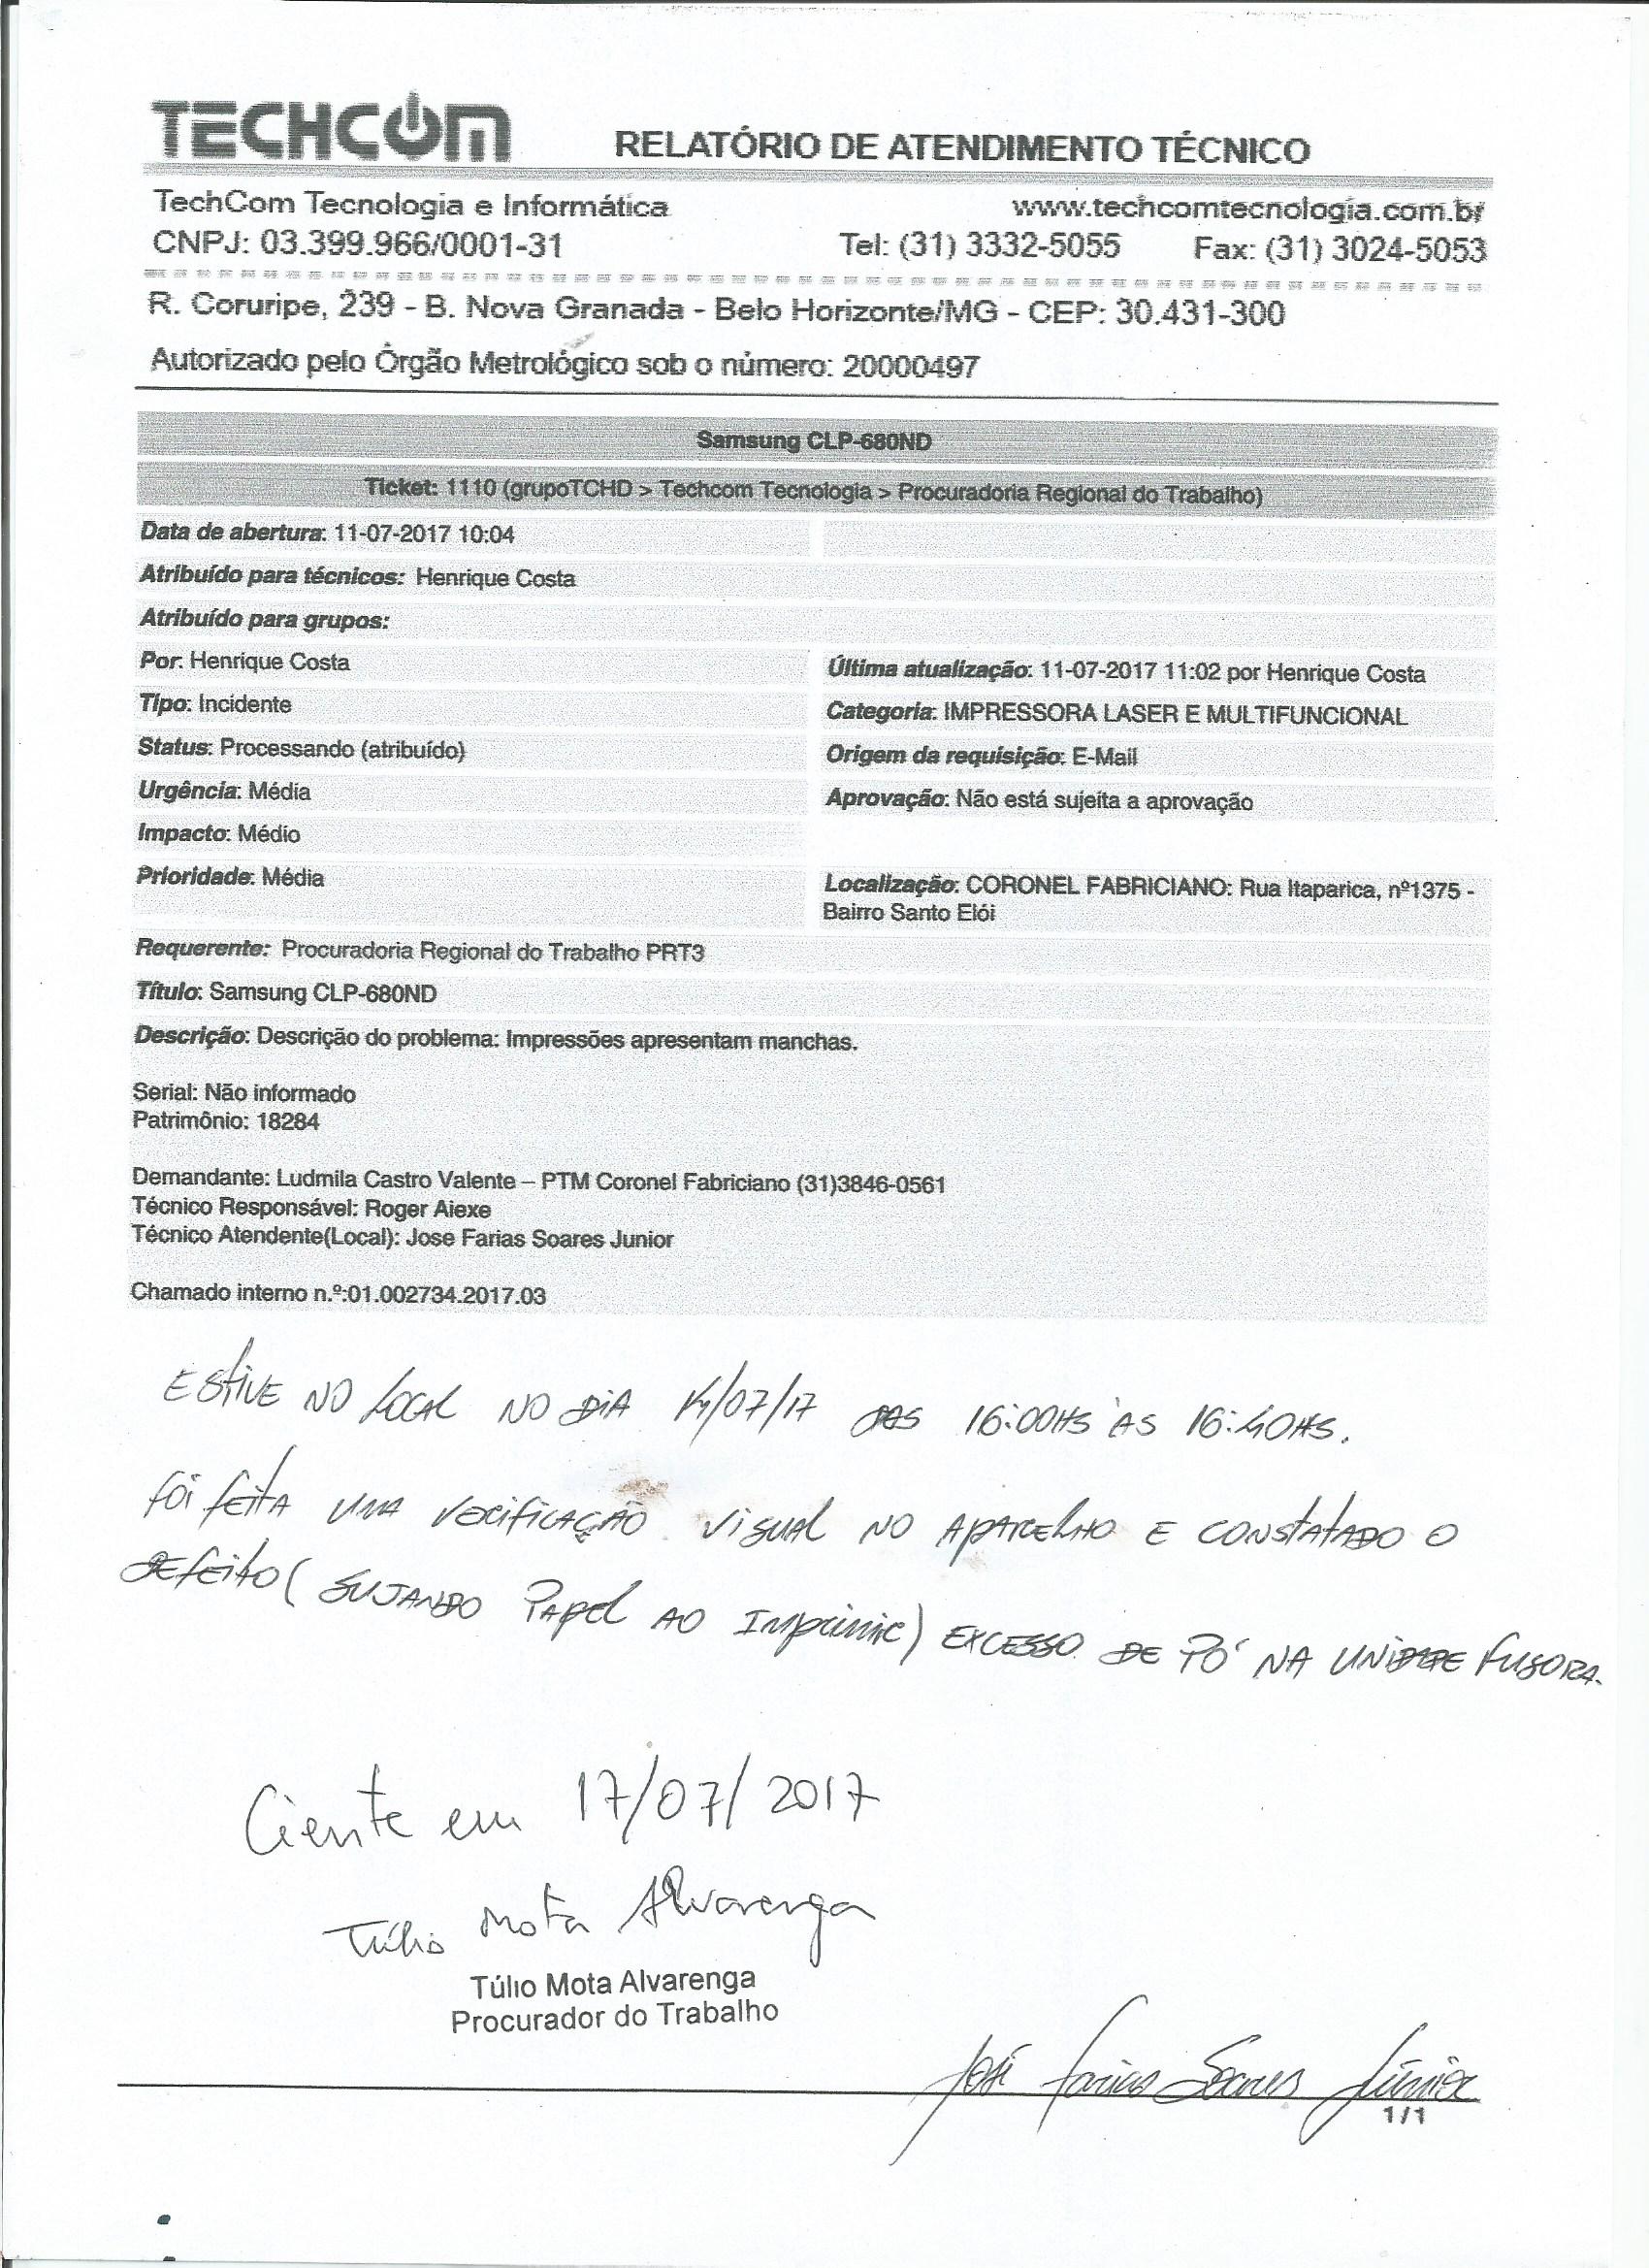 TECHCOM RELATÓRIO DE ATENDIMENTO TÉCNICO
TechCom Tecnologia e Informática www.techcomtecnologia.com.br
CNPJ: 03.399.966/0001-31 Tel: (31) 3332-5055 Fax: (31) 3024-5053
R. Coruripe, 239 - B. Nova Granada - Belo Horizonte/MG - CEP: 30.431-300
Autorizado pelo Órgão Metrológico sob o número: 20000497
Samsung CLP-680ND
Ticket: 1110 (grupoTCHD > Techcom Tecnologia > Procuradoria Regional do Trabalho)
Data de abertura: 11-07-2017 10:04
Atribuído para técnicos: Henrique Costa
Atribuído para grupos:
Por: Henrique Costa Última atualização: 11-07-2017 11:02 por Henrique Costa
Tipo: Incidente Categoria: IMPRESSORA LASER E MULTIFUNCIONAL
Status: Processando (atribuído) Origem da requisição: E-Mail
Urgência: Média Aprovação: Não está sujeita a aprovação
Impacto: Médio
Prioridade: Média Localização: CORONEL FABRICIANO: Rua Itaparica, nº1375 -
Bairro Santo Elói
Requerente: Procuradoria Regional do Trabalho PRT3
Título: Samsung CLP-680ND
Descrição: Descrição do problema: Impressões apresentam manchas.
Serial: Não informado
Patrimônio: 18284
Demandante: Ludmila Castro Valente – PTM Coronel Fabriciano (31)3846-0561
Técnico Responsável: Roger Aiexe
Técnico Atendente(Local): Jose Farias Soares Junior
Chamado interno n.º:01.002734.2017.03
ESTIVE NO LOCAL NO DIA 14/07/17 DAS 16:00HS ÀS 16:40HS.
FOI FEITA UMA VERIFICAÇÃO VISUAL NO APARELHO E CONSTATADO O
DEFEITO ( SUJANDO PAPEL AO IMPRIMIR) EXCESSO DE PÓ NA UNIDADE FUSORA.
Ciente em 17/07/2017
Túlio Mota Alvarenga
Túlio Mota Alvarenga
Procurador do Trabalho
José Farias Soares Júnior
1/1